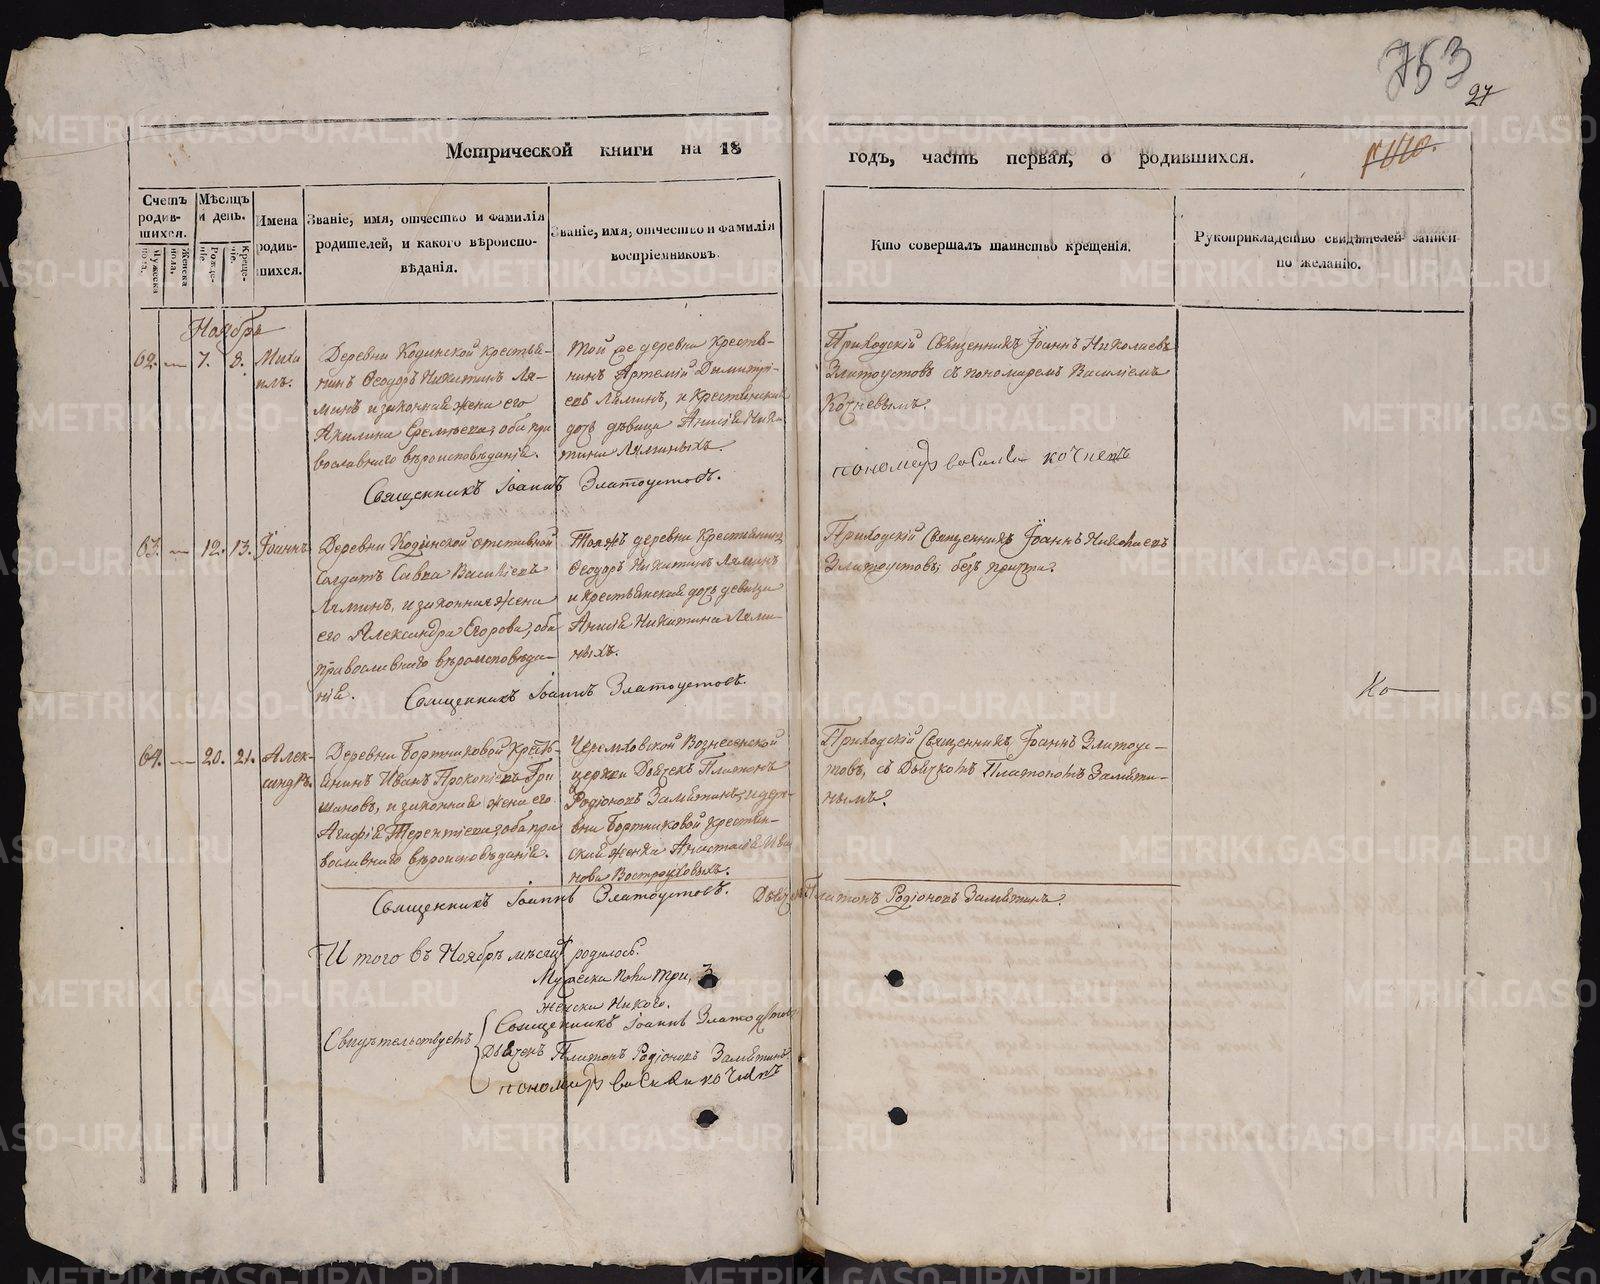 753
27
Метрической книги на 18
годъ, часть первая, о родившихся.
Счетъ родив-шихся.
Мужеска пола.
Женска пола.
Мѣсяцъ и день.
Рожде-ніе.
Креще-ніе.
Имена родив-шихся.
Званіе, имя, отчество и фамилія
родителей, и какого вѣроиспо-
вѣданія.
Званіе, имя, отчество и фамилія
воспріемниковъ.
Кто совершалъ таинство крещенія.
Рукоприкладство свидѣтелей записи
по желанію.
Ноябрь
62. — 7. 8. Миха
илъ.
Деревни Кодинской крестья-
нинъ Ѳеодоръ Никитинъ Ля-
минъ и законная жена его
Акилина Еремѣева, оба пра
вославнаго вѣроисповѣданія.
Той же деревни крестья-
нинъ Артемій Дымитрі-
евъ Ляминъ, и крестьянская
дочь дѣвица Анисія Ники-
тина Ляминыхъ.
Приходскій Священникъ Іоаннъ Николаевъ
Златоустовъ съ пономаремъ Василіемъ
Кочневымъ.
Священникъ Іоаннъ Златоустовъ.
пономарь василеи кочневъ
63. — 12. 13. Іоаннъ
Деревни Кодинской отставной
солдатъ Савва Василіевъ
Ляминъ, и законная жена
его Александра Егорова, оба
православнаго вѣроисповѣда-
нія.
Тояжъ деревни крестьянинъ
Ѳеодоръ Никитинъ Ляминъ
и крестьянская дочь девица
Анисія Никитина Лями-
ныхъ.
Приходскій Священникъ Іоаннъ Николаевъ
Златоустовъ; безъ притча.
Священникъ Іоаннъ Златоустовъ.
Ко
64. — 20. 21. Алек-
сандръ.
Деревни Бортниковой Кресть-
янинъ Иванъ Прокопіевъ Гри
шановъ, и законная жена его
Агафія Терентіева, оба пра
вославнаго вѣроисповѣданія.
Черемховской Вознесенской
церкви Дьячекъ Платонъ
Родіоновъ Замятинъ, и дерев-
ни Бортниковой крестьян-
ская женка Анастасія Ива
нова Востроковыхъ.
Приходскій Священникъ Іоаннъ Златоус-
товъ, съ Дьячкомъ Платономъ Замяти-
нымъ.
Священникъ Іоаннъ Златоустовъ. Дьячекъ Платонъ Родіоновъ Замятинъ.
Итого въ Ноябрѣ мѣсяцѣ родилось.
Мужеска пола три, 3
женска никого.
Свидѣтельствуетъ
Священникъ Іоаннъ Златоустовъ
Дьячекъ Платонъ Родіоновъ Замятинъ.
пономарь василеи кочневъ
METRIKI.GASO-URAL.RU